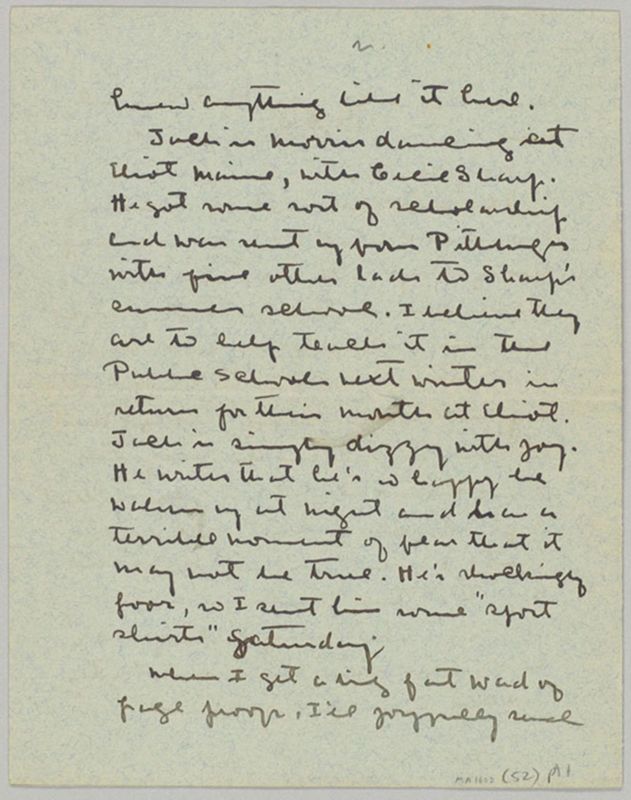 2.
knew anything like it here.
Jack is morris dancing at
Eliot Maine, with Cecil Sharp.
He got some sort of scholarship
and was sent up from Pittsburgh
with five other lads to Sharp's
summer school. I believe they
are to help teach it in the
Public Schools next winter in
return for their month at Eliot.
Jack is simply dizzy with joy.
He writes that he's so happy he
wakens up at night and has a
terrible moment of fear that it
may not be true. He's shockingly
poor, so I sent him some "sport
shirts" Saturday
When I get a big fat wad of
page proofs, I'll joyfully send
MA 1602 (52) p1